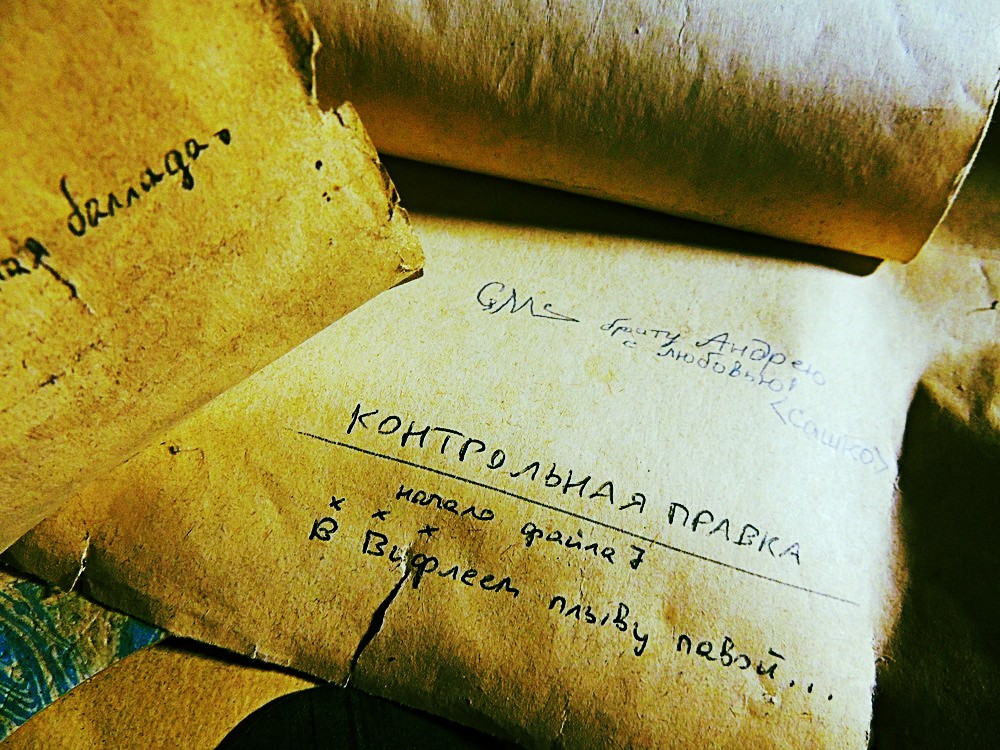 баллада.
брату Андрею
с любовью!
<Сашко>
КОНТРОЛЬНАЯ ПРАВКА
начало файла 7
х х х
В Вифлеем плыву павой...